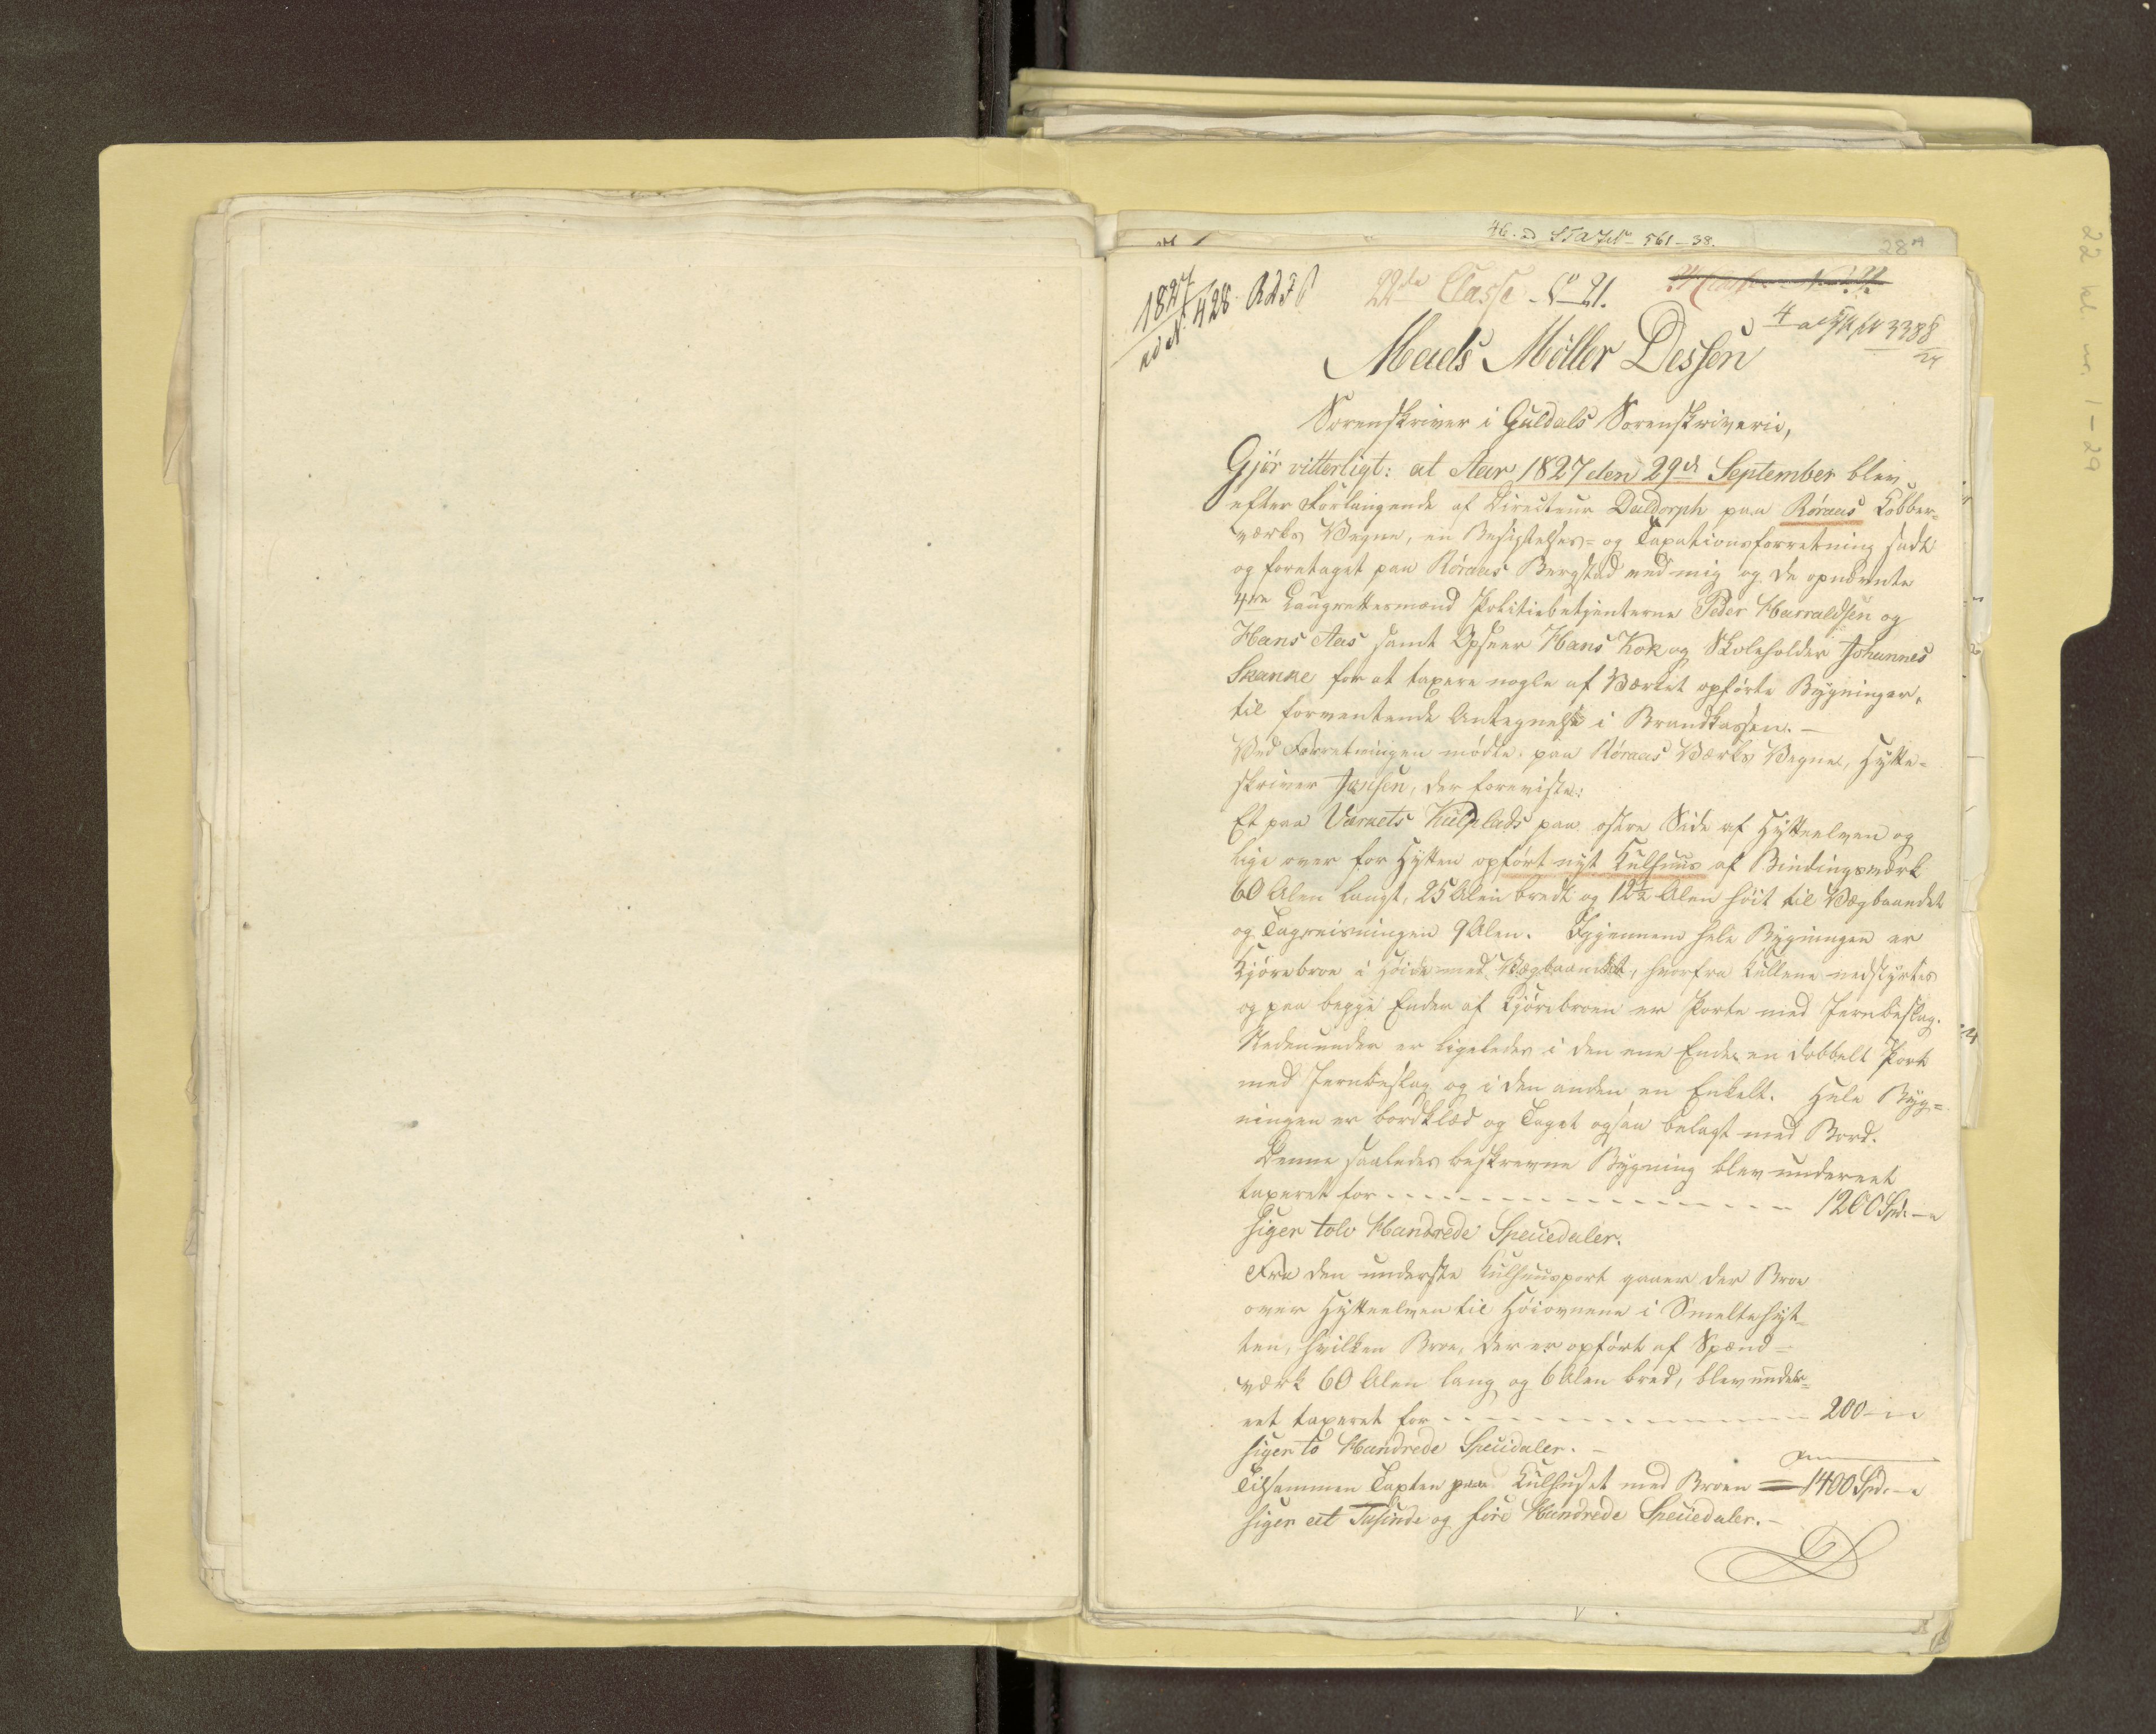 46. ad 561-38.
28 A
1827
ad N. 428
22de Classe No 21.
4 ad 3388
Mads Möller Dessen
Sorenskriver i Guldals Sorenskriverie,
Gjör vitterligt: at Aar 1827 den 29de September blev
efter Forlangende af Directeur Daldorph paa Röraas Kobber=
værks Vegne, en Besigtelses= og Taxationsforretning sadt
og foretaget paa Röraas Bergstad med mig og de opnævnte
4re Laugrettesmænd Politiebetjenterne Peder Harraldsen og
Hans Aas samt Opseer Hans Kok og Skoleholder Johannes
Skanke for at taxere nogle af Værket opförte Bygninger,
til forventende Antegnelse i Brandkassen. –
Ved Forretningen mödte paa Röraas Værks Vegne, Hytte=
skriver Jensen, der foreviste:
Et paa Værkets Kulplads paa östre Side af Hytteelven og
lige over for Hytten opfört nyt Kulhuus af Bindingsværk
60 Alen langt, 25 Alen bredt og 12½ Alen höit til Vægbaandet
og Tagreisningen 9 Alen. Igjennem hele Bygningen er
Kjörebroe i Höide med Vægbaandet, hvorfra Kullene nedstyrtes
og paa begge Ender af Kjörebroen er Porte med Jernbeslag.
Nedenunder er ligeledes i den ene Ende en dobbelt Port
med Jernbeslag og i den anden en Enkelt. Hele Byg=
ningen er bordklæd og Taget ogsaa belagt med Bord.
Denne saaledes beskrevne Bygning blev undereet
taxeret for - - - - - - - - - - - - 1200 Spd. –
siger tolv Hundrede Speciedaler.
Fra den underste Kulhuusport gaaer der Broe
over Hytteelven til Höiovnene i Smeltehyt=
ten, hvilken Broe, der er opfört af Spænd=
værk 60 Alen lang og 6 Alen bred, blev under=
eet taxeret for - - - - - - - - - - - - 200 –
siger to Hundrede Speciedaler. –
Tilsammen Taxten paa Kulhuset med Broen = 1400 Spd. –
siger eet Tusinde og fire Hundrede Speciedaler. –
22 kl. nr. 1-29